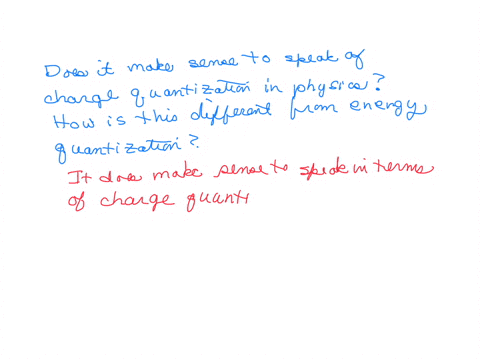 Does it make sense to speak of
charge quantization in physics?
How is this different from energy
quantization?
It does make sense to speak in terms
of charge quanti